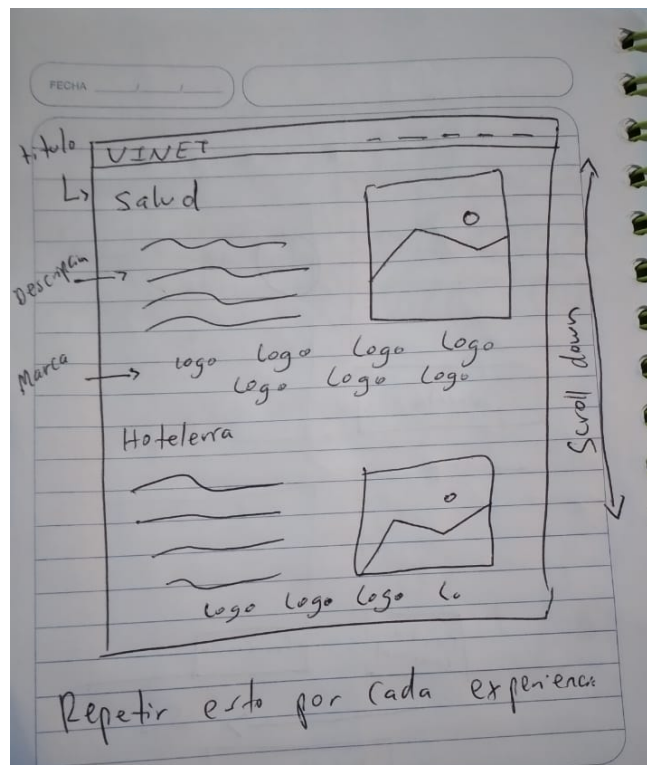 FECHA / /
título
VINET
Salud
Descripción
Marca
Logo Logo Logo Logo
Logo Logo Logo
Hotelería
Logo Logo Logo Lo
Scroll down
Repetir esto por cada experiencia